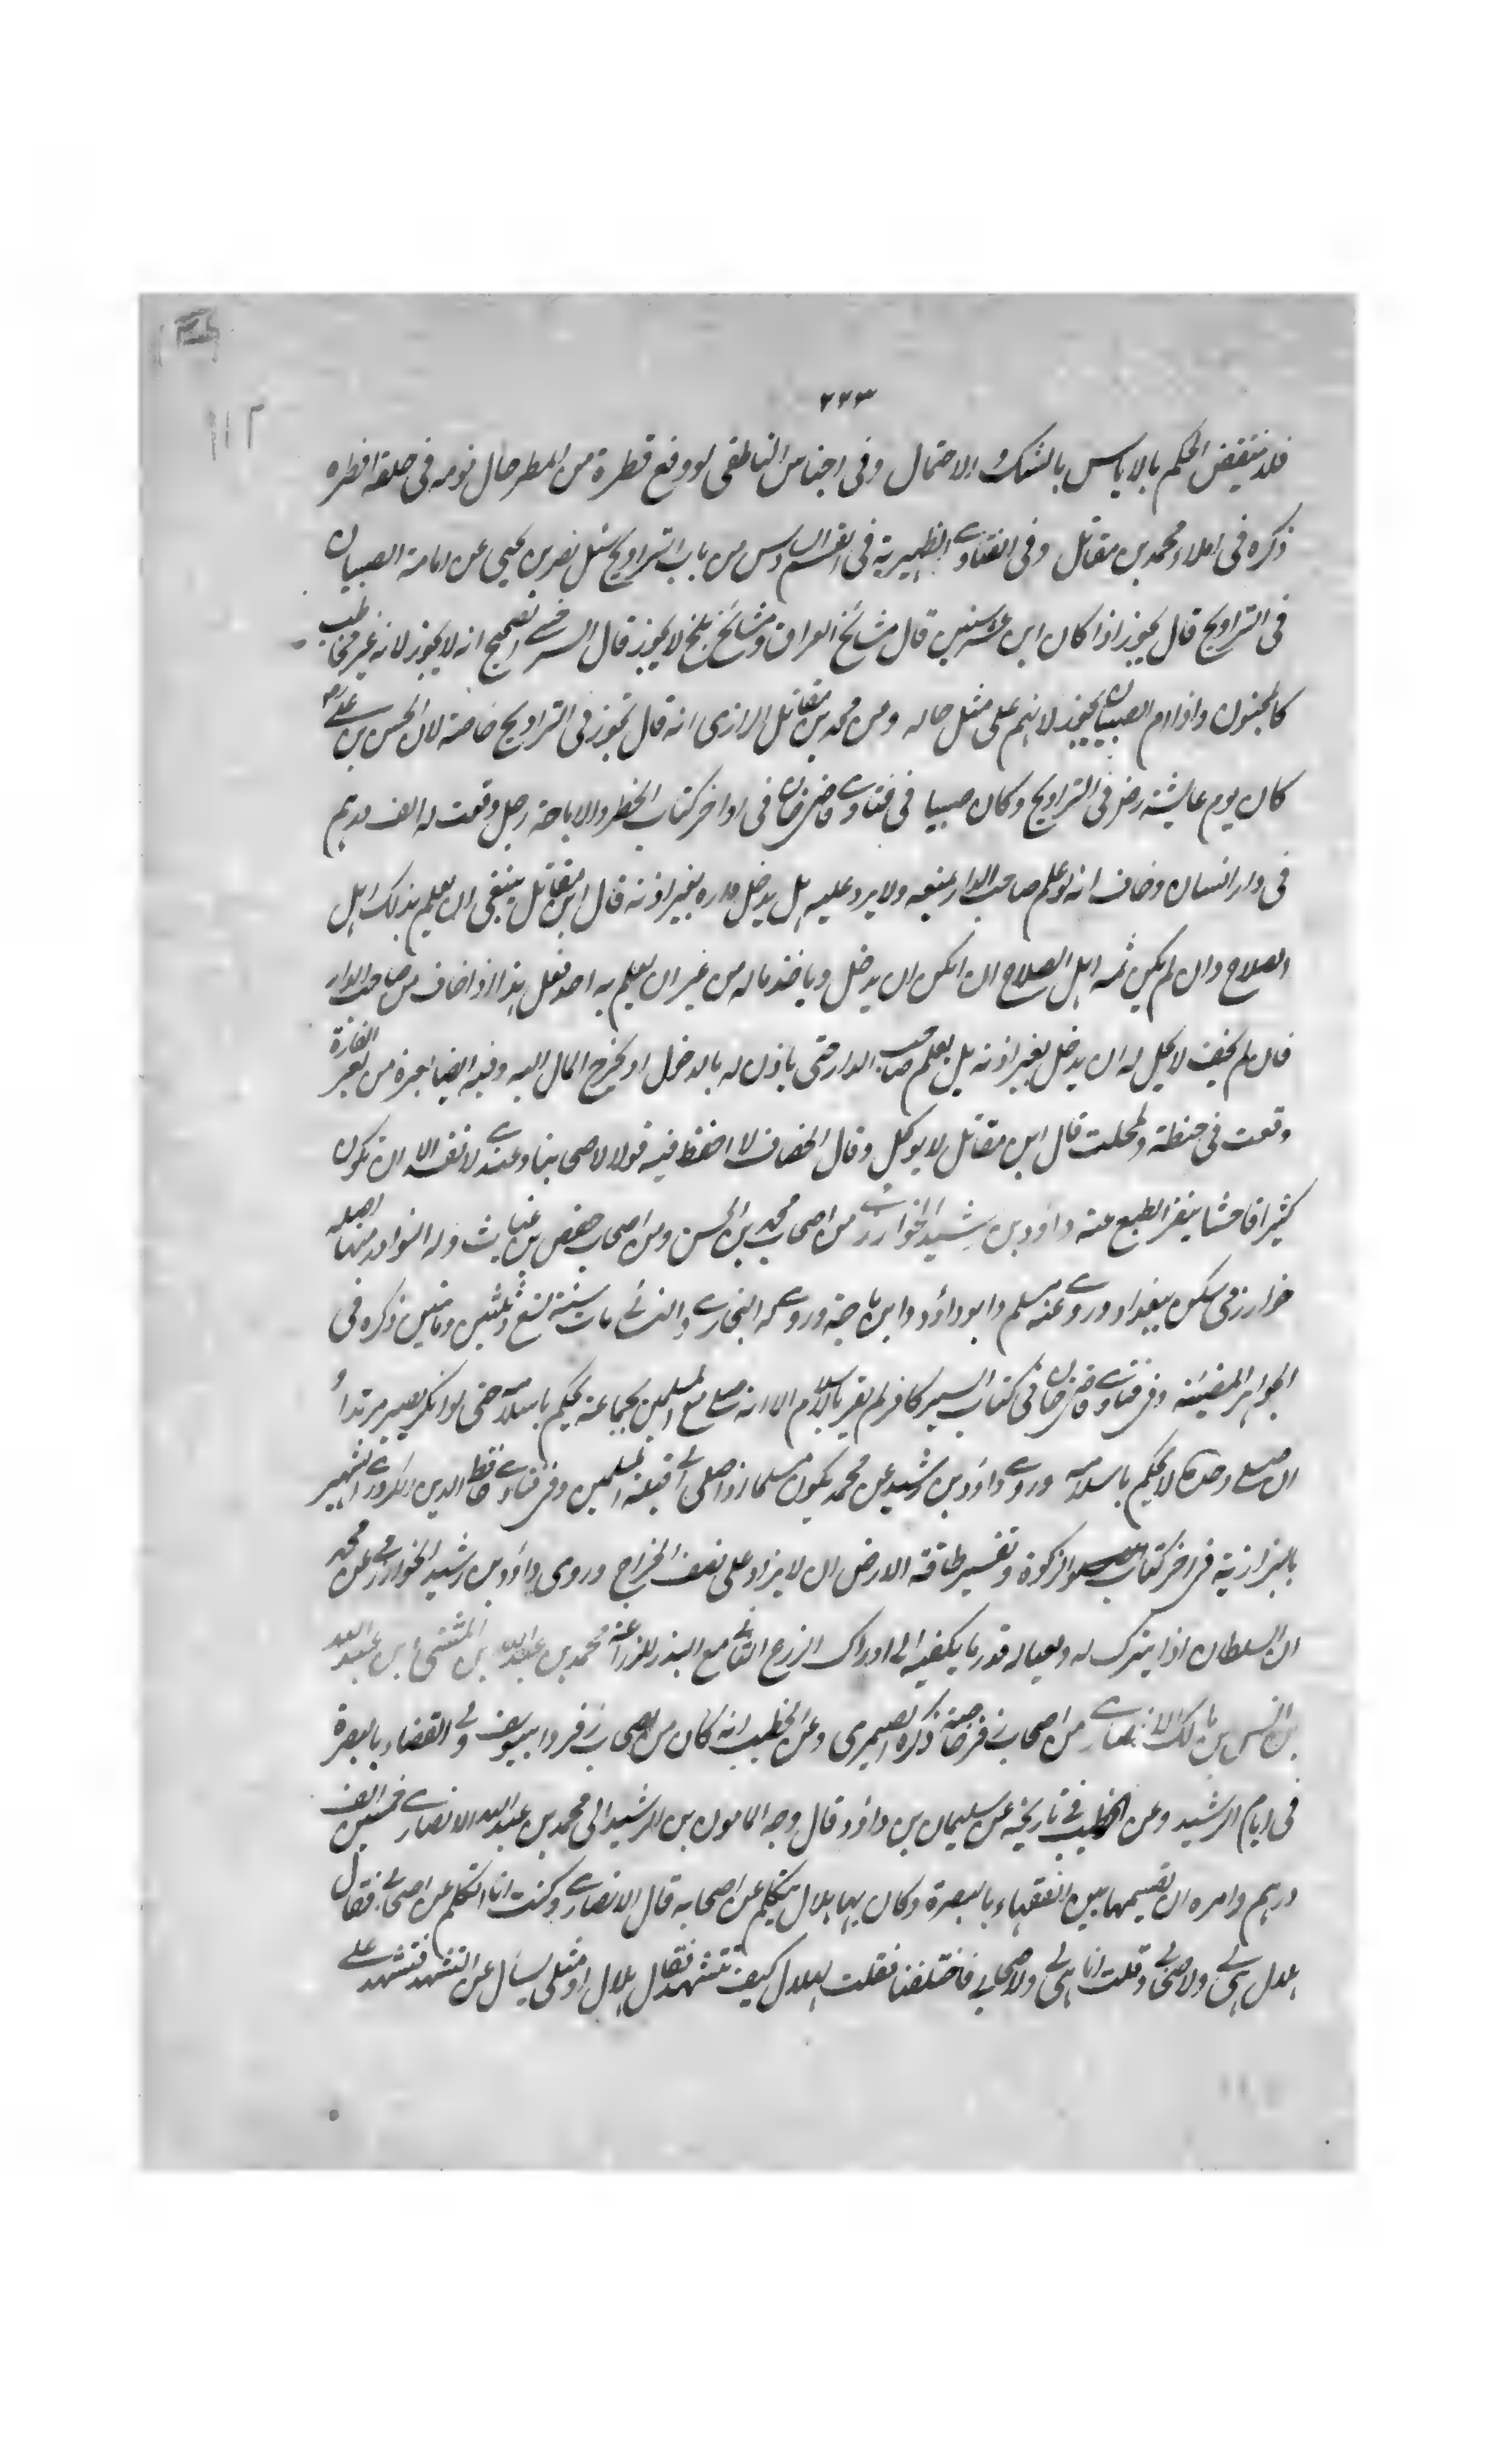 ٢٢٣
فلا ينتقض الحكم بالاياس بالشك والاحتمال وفى اجناس الناطفى لو وقع قطرة من المطر حال نومه فى حلقه افطره
ذكره فى املاء محمد بن مقاتل وفى الفتاوى الظهيرية فى القسم السادس من باب التراويح سئل نصر بن يحيى عن امامة الصبيان
فى التراويح قال يجوز اذا كان ابن عشر سنين قال مشائخ العراق ومشائخ بلخ لا يجوز قال السرخسى الصحيح انه لا يجوز لانه غير مخاطب
كالمجنون واذا ام الصبيان يجوز لانهم على مثل حاله ومن محمد بن مقاتل الرازى انه قال تجوز فى التراويح خاصة لان الحسن بن على رض
كان يوم عايشة رض فى التراويح وكان صبيا فى فتاوى قاضى خان فى اواخر كتاب الحظر والاباحة رجل وقعت له الف درهم
فى دار انسان وخاف انه لو علم صاحب الدار يمنعه ولا يرد عليه هل يدخل داره بغير اذنه قال ابن مقاتل ينبغى ان يعلم بذلك اهل
الصلاح وان لم يكن ثمه اهل الصلاح ان امكن ان يدخل وياخذ ماله من غير ان يعلم به احد فعل هذا اذا خاف من صاحب الدار
فان لم يخف لا يحل له ان يدخل بغير اذنه بل يعلم صاحب الدار حتى ياذن له بالدخول او يخرج المال اليه وفيه ايضا بعرة من بعر الفارة
وقعت فى حنطة وطحنت قال ابن مقاتل لا يوكل وقال الخصاف لا احفظ فيه قولا لاصحابنا وعندى لا تفسد الا ان تكون
كثيرا فاحشا ينفر الطبع عنه داود بن رشيد الخوارزمى من اصحاب محمد بن الحسن ومن اصحاب حفص بن غياث وله النوادر منها اصله
خوارزمى سكن بغداد وروى عنه مسلم وابو داؤد وابن ماجة وروى له البخارى والنسائى مات سنة تسع وثلثين ومائتين ذكره فى
الجواهر المضيئة وفى فتاوى قاضى خان فى كتاب السير كافر لم يقر بالاسلام الا انه صلى مع المسلمين بجماعة يحكم باسلامه حتى لو انكر يصير مرتدا و
ان صلى وحده لا يحكم باسلامه وروى داؤد بن رشيد عن محمد يكون مسلما اذا صلى الى قبلة المسلمين وفى فتاوى حافظ الدين الكردرى الشهير
بالبزازية فى اخر كتاب الزكوة وتفسير طاقة الارض ان لا يزاد على نصف الخراج وروى داؤد بن رشيد الخوارزمى عن محمد
ان السلطان اذا يترك له ولعياله قدر ما يكفيه الى ادراك الزرع الثانى مع البذر للزراعة محمد بن عبد الله بن المثنى بن عبد الله
بن انس بن مالك الانصارى من اصحاب زفر خاصة ذكره الصيمرى وعن الخطيب انه كان من اصحاب زفر وابى يوسف ولى القضاء بالبصرة
فى ايام الرشيد وعن الخطيب فى تاريخه عن سليمان بن داؤد قال وجه المامون بن الرشيد الى محمد بن عبد الله الانصارى خمسين الف
درهم وامره ان يقسمها بين الفقهاء بالبصرة وكان بها هلال يتكلم عن اصحابه قال الانصارى وكنت انا اتكلم عن اصحابى فقال
هلال هى لى ولاصحابى وقلت انا هى لى ولاصحابى فاختلفنا فقلت لهلال كيف تتشهد فقال هلال او مثلى يسأل عن التشهد فتشهد على